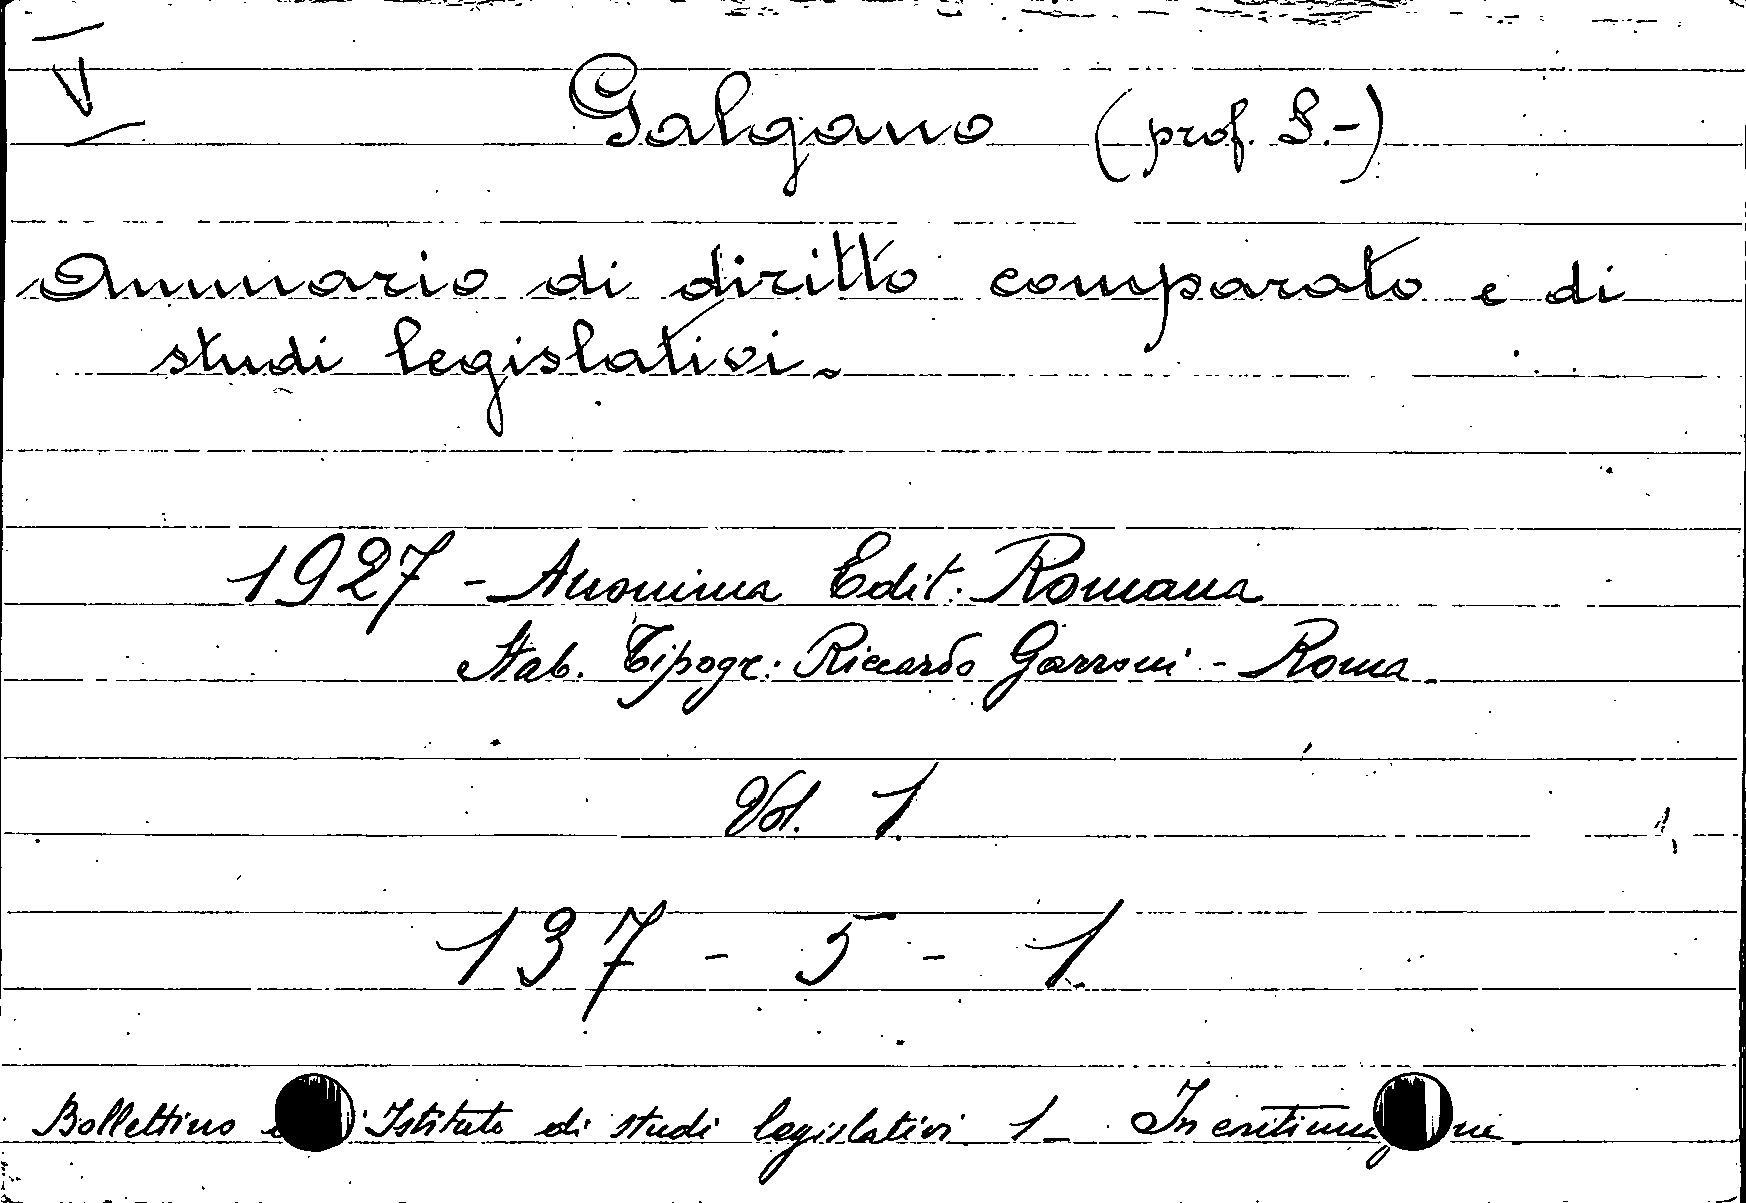 V
Galgano (prof. S.-)
Annuario di diritto comparato e di
studi legislativi.
1927 - Anonima Edit. Romana
Stab. Tipogr. Riccardo Garroni - Roma.
Vol. 1
137 - 5 - 1
Bollettino Istituto di studi legislativi 1 - In